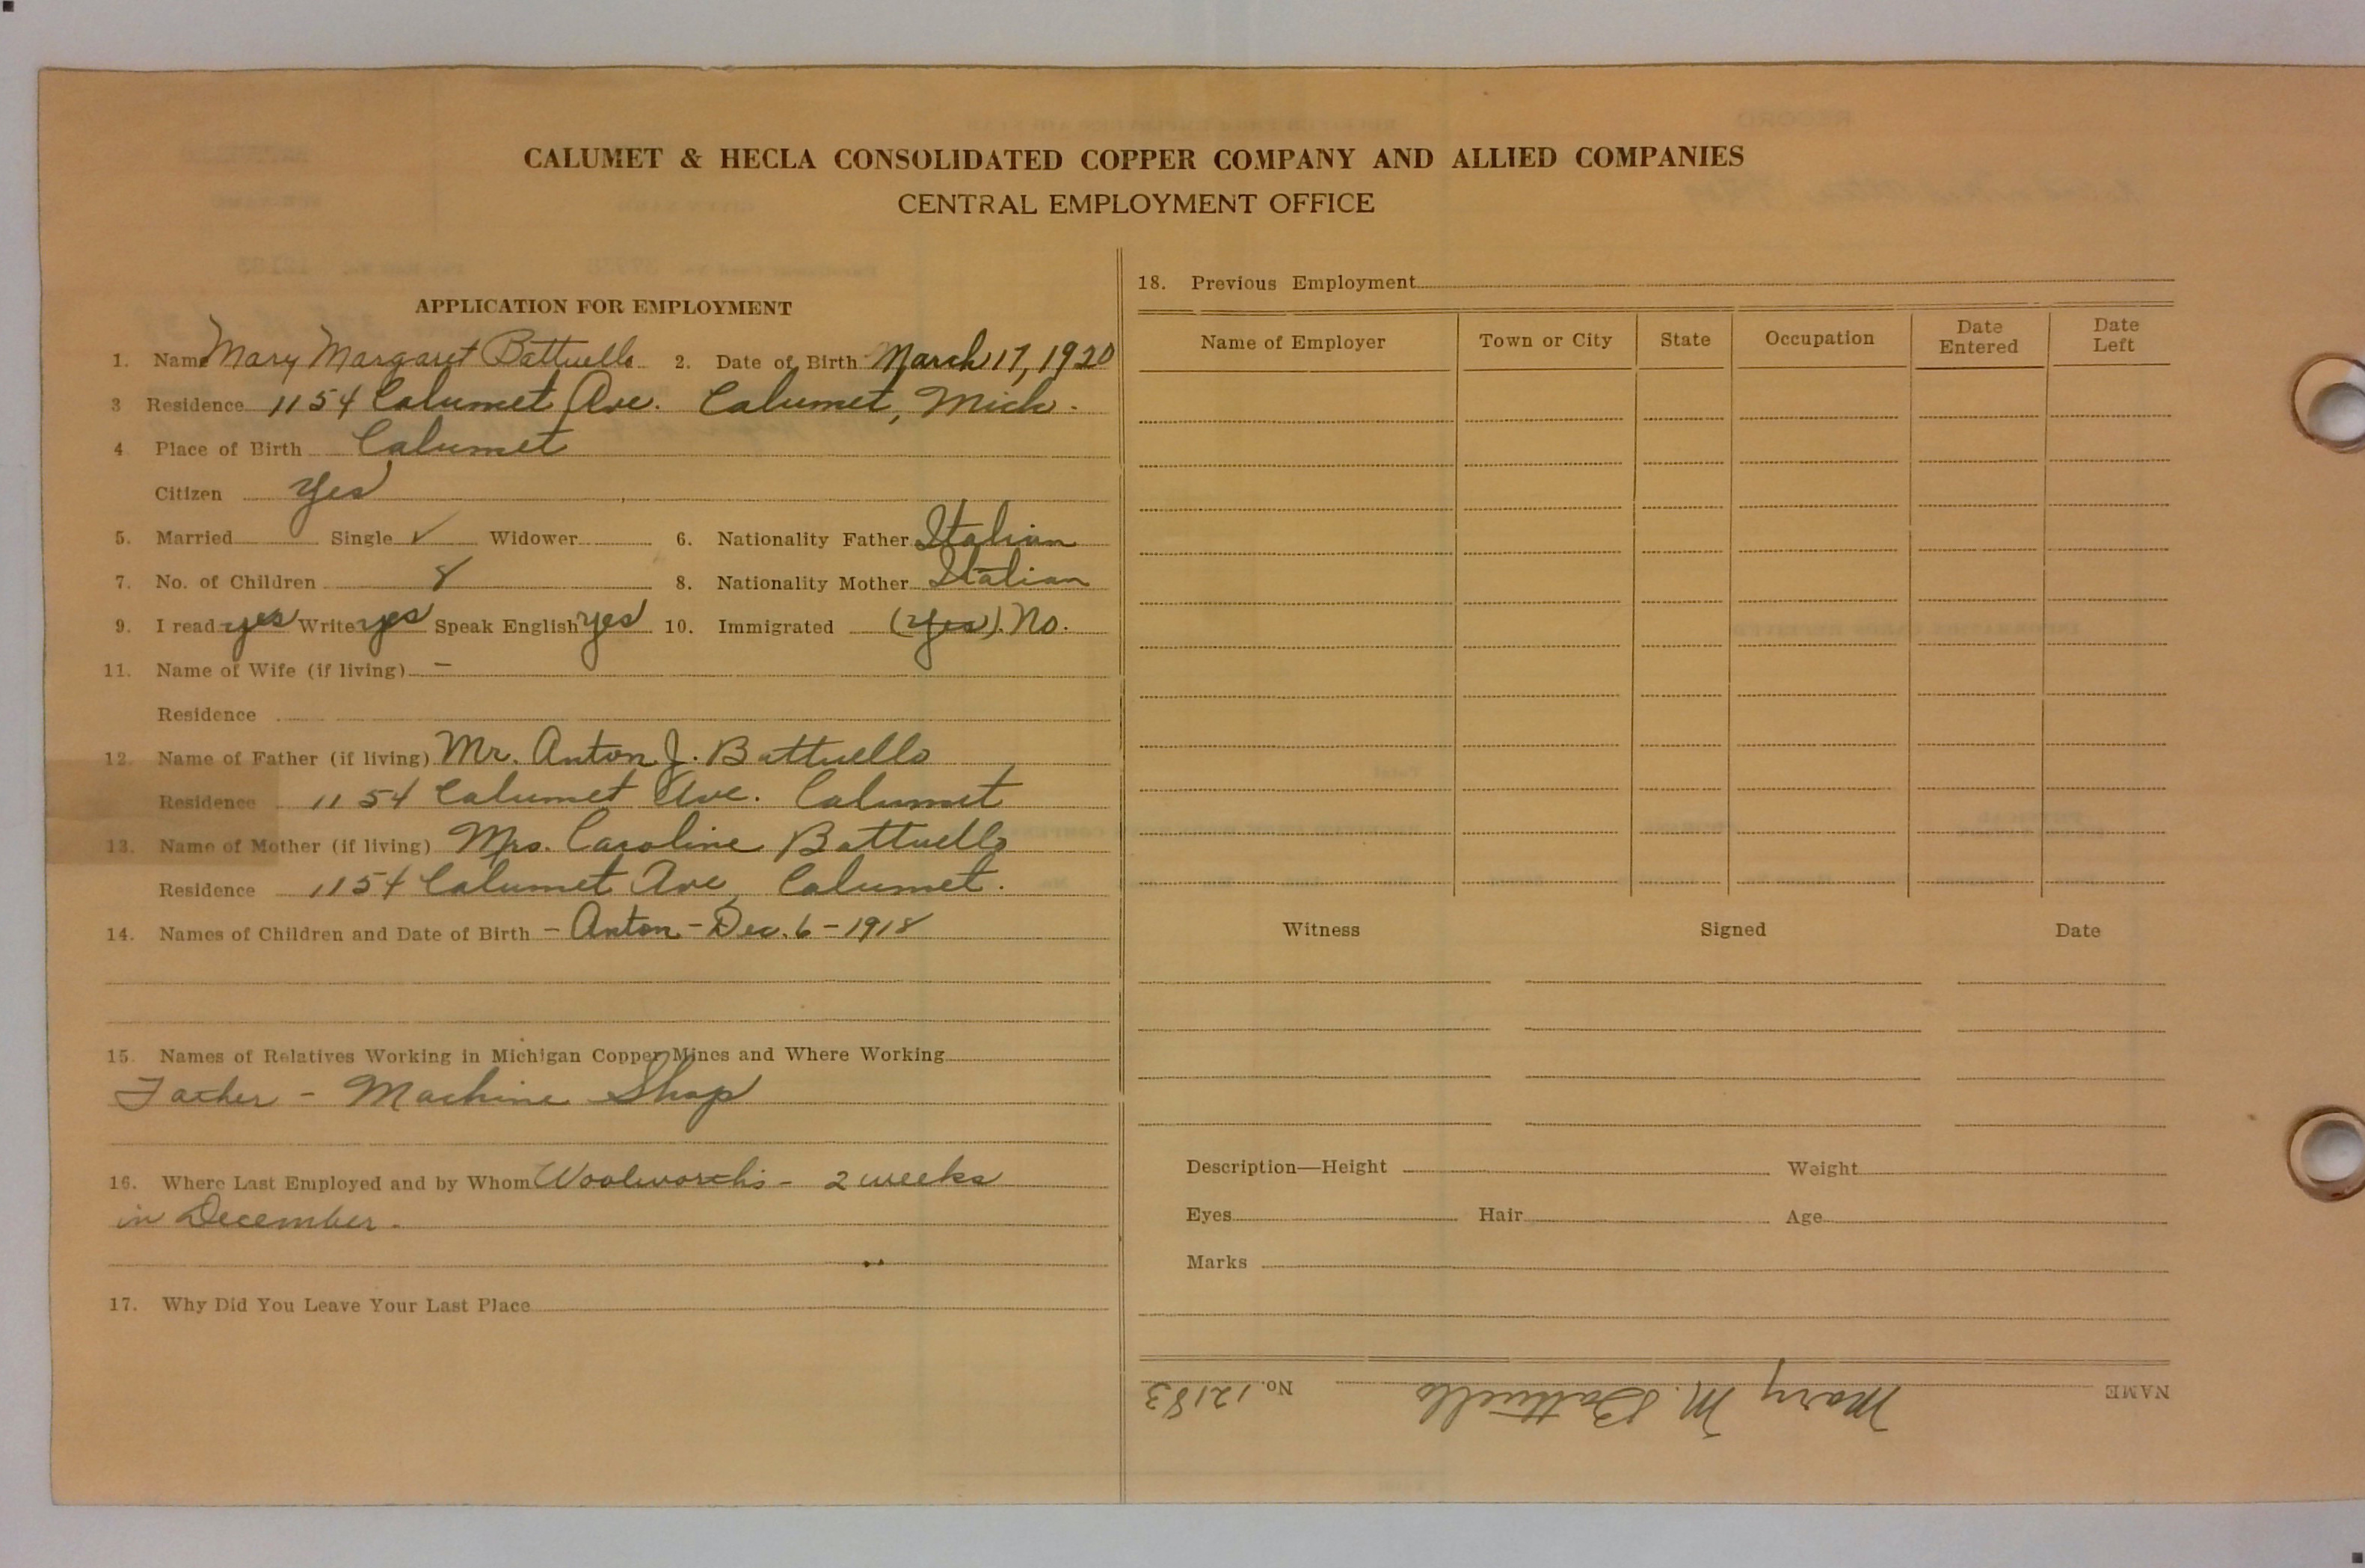 CALUMET & HECLA CONSOLIDATED COPPER COMPANY AND ALLIED COMPANIES
CENTRAL EMPLOYMENT OFFICE
APPLICATION FOR EMPLOYMENT
1. Name Mary Margaret Battuello 2. Date of Birth March 17, 1920
3 Residence 1154 Calumet Ave. Calumet, Mich.
4 Place of Birth Calumet
Citizen Yes
5. Married Single ✓ Widower 6. Nationality Father Italian
7. No. of Children 8 8. Nationality Mother Italian
9. I read yes Write yes Speak English yes 10. Immigrated (Yes). No.
11. Name of Wife (if living) –
Residence
12. Name of Father (if living) Mr. Anton J. Battuello
Residence 1154 Calumet Ave. Calumet
13. Name of Mother (if living) Mrs. Caroline Battuello
Residence 1154 Calumet Ave, Calumet.
14. Names of Children and Date of Birth – Anton – Dec. 6 – 1918
15. Names of Relatives Working in Michigan Copper Mines and Where Working
Father – Machine Shop
16. Where Last Employed and by Whom Woolworth's – 2 weeks
in December.
17. Why Did You Leave Your Last Place
18. Previous Employment
Name of Employer Town or City State Occupation Date Entered Date Left
Witness Signed Date
Description—Height Weight
Eyes Hair Age
Marks
NAME Mary M. Battuello No. 12183